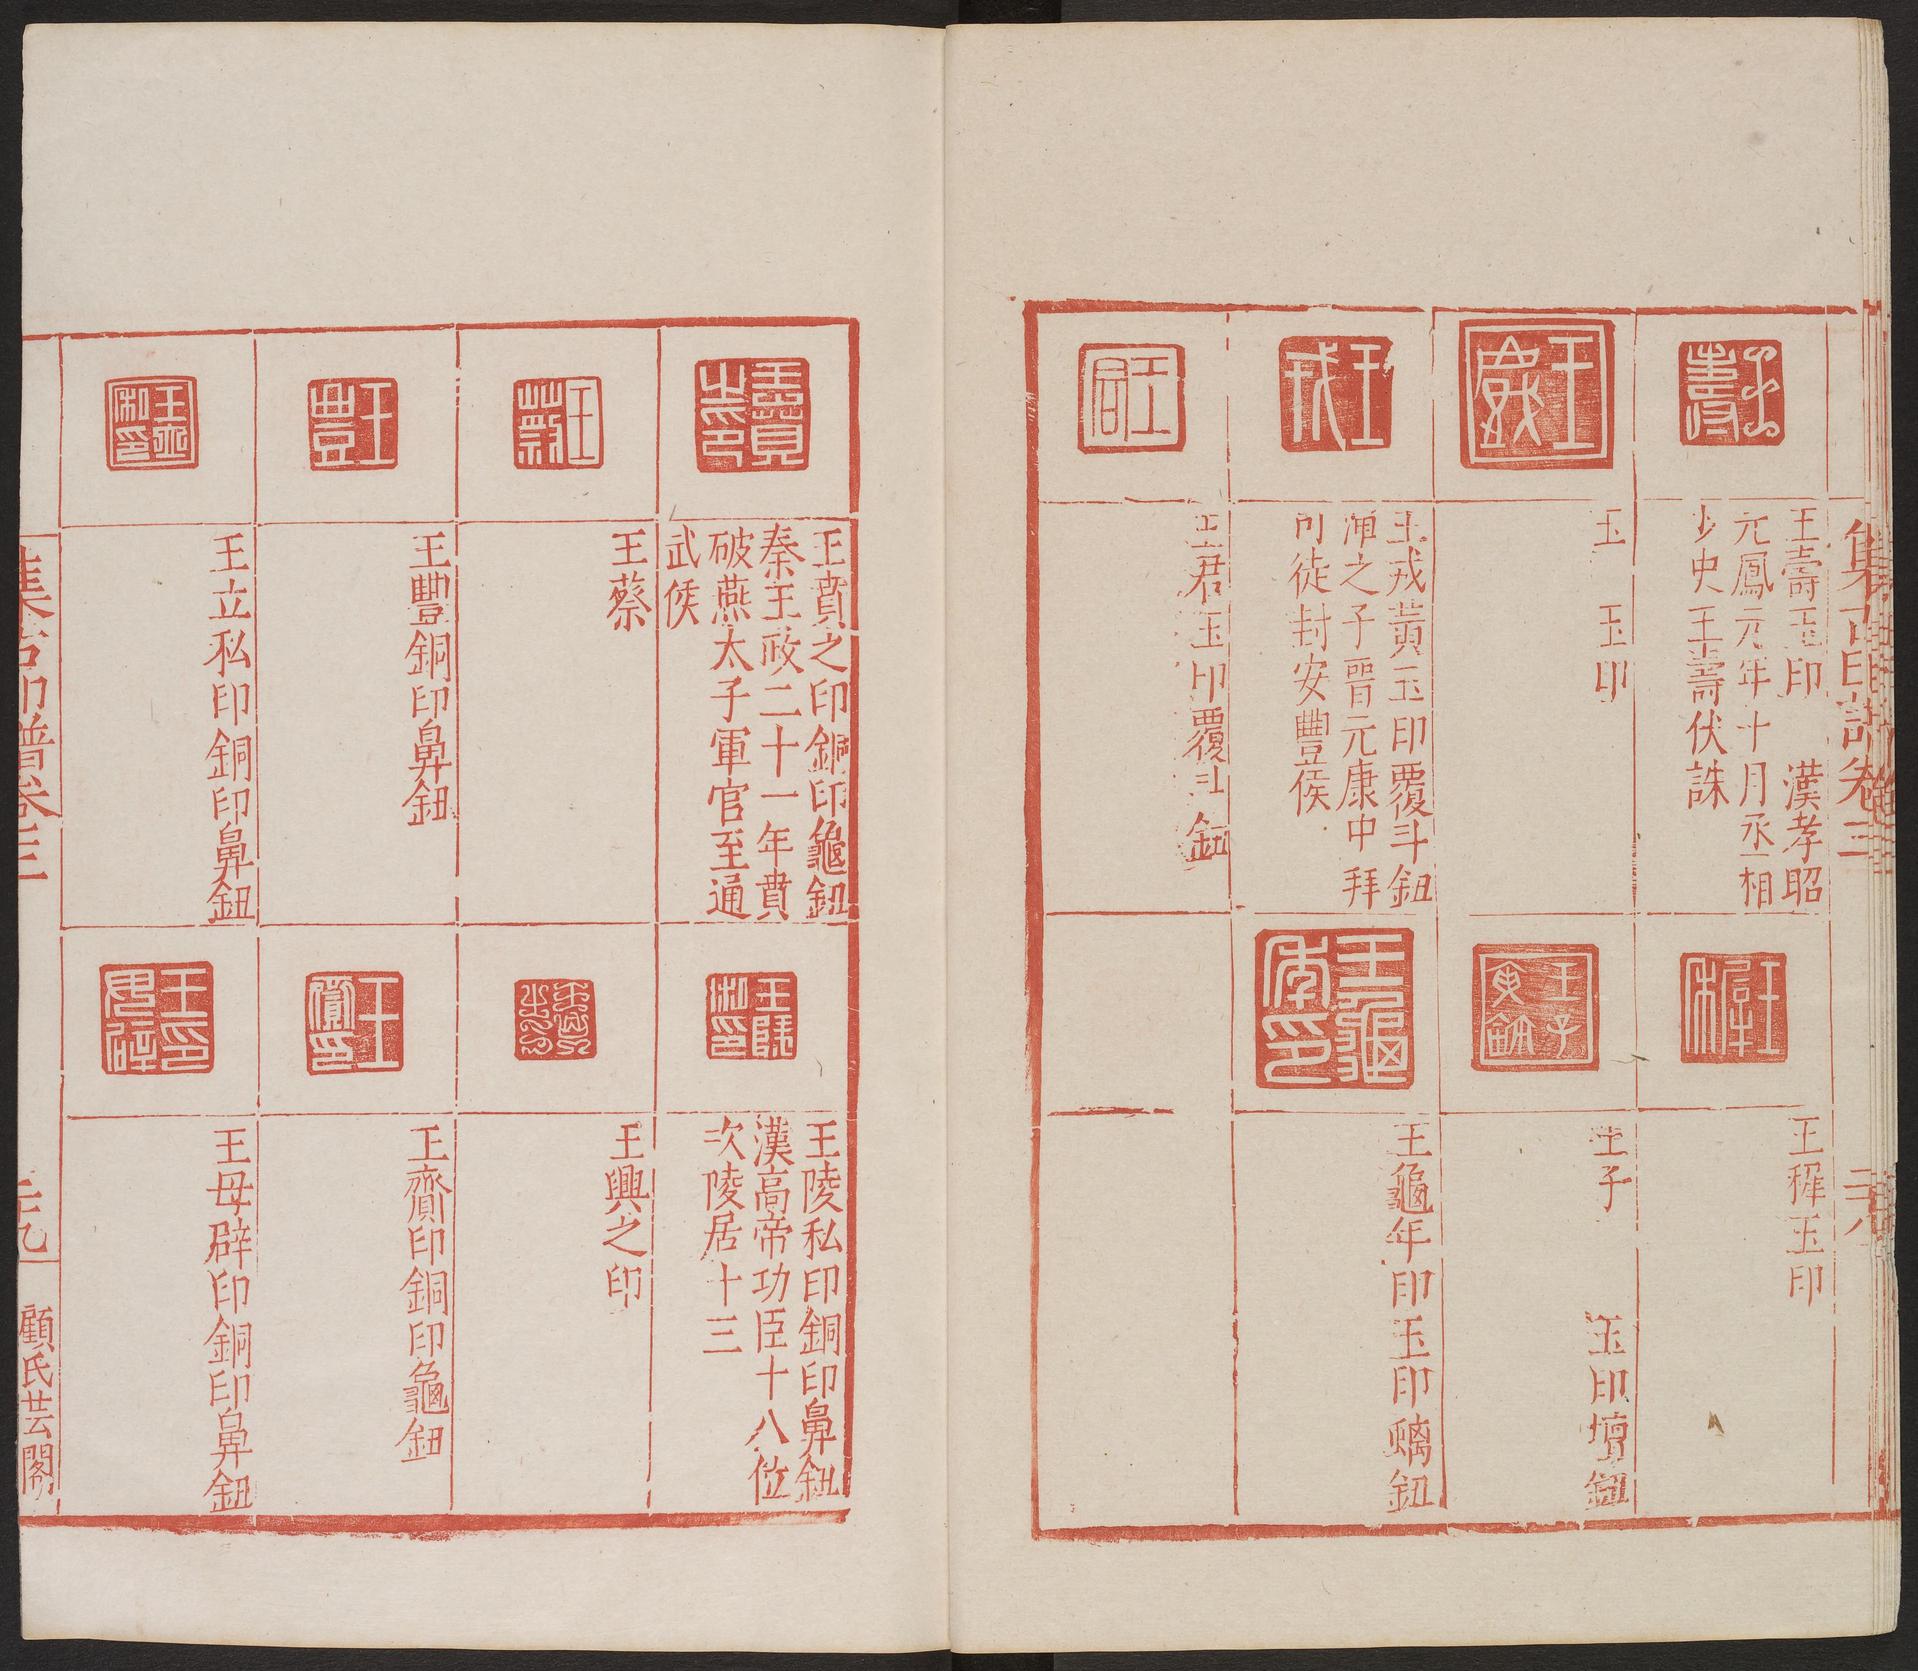 集古印譜卷三
王壽玉印　漢孝昭
元鳳元年十月丞相
少史王壽伏誅
玉印
王戎黃玉印覆斗鈕
渾之子晉元康中拜
司徒封安豐侯
王君玉印覆斗鈕
王穉玉印
王子　玉印壇鈕
王龜年印玉印螭鈕
王賁之印銅印龜鈕
秦王政二十一年賁
破燕太子軍官至通
武侯
王蔡
王豐銅印鼻鈕
王立私印銅印鼻鈕
王陵私印銅印鼻鈕
漢高帝功臣十八位
次陵居十三
王興之印
王齎印銅印龜鈕
王母辟印銅印鼻鈕
集古印譜卷三
二十九
顧氏芸閣